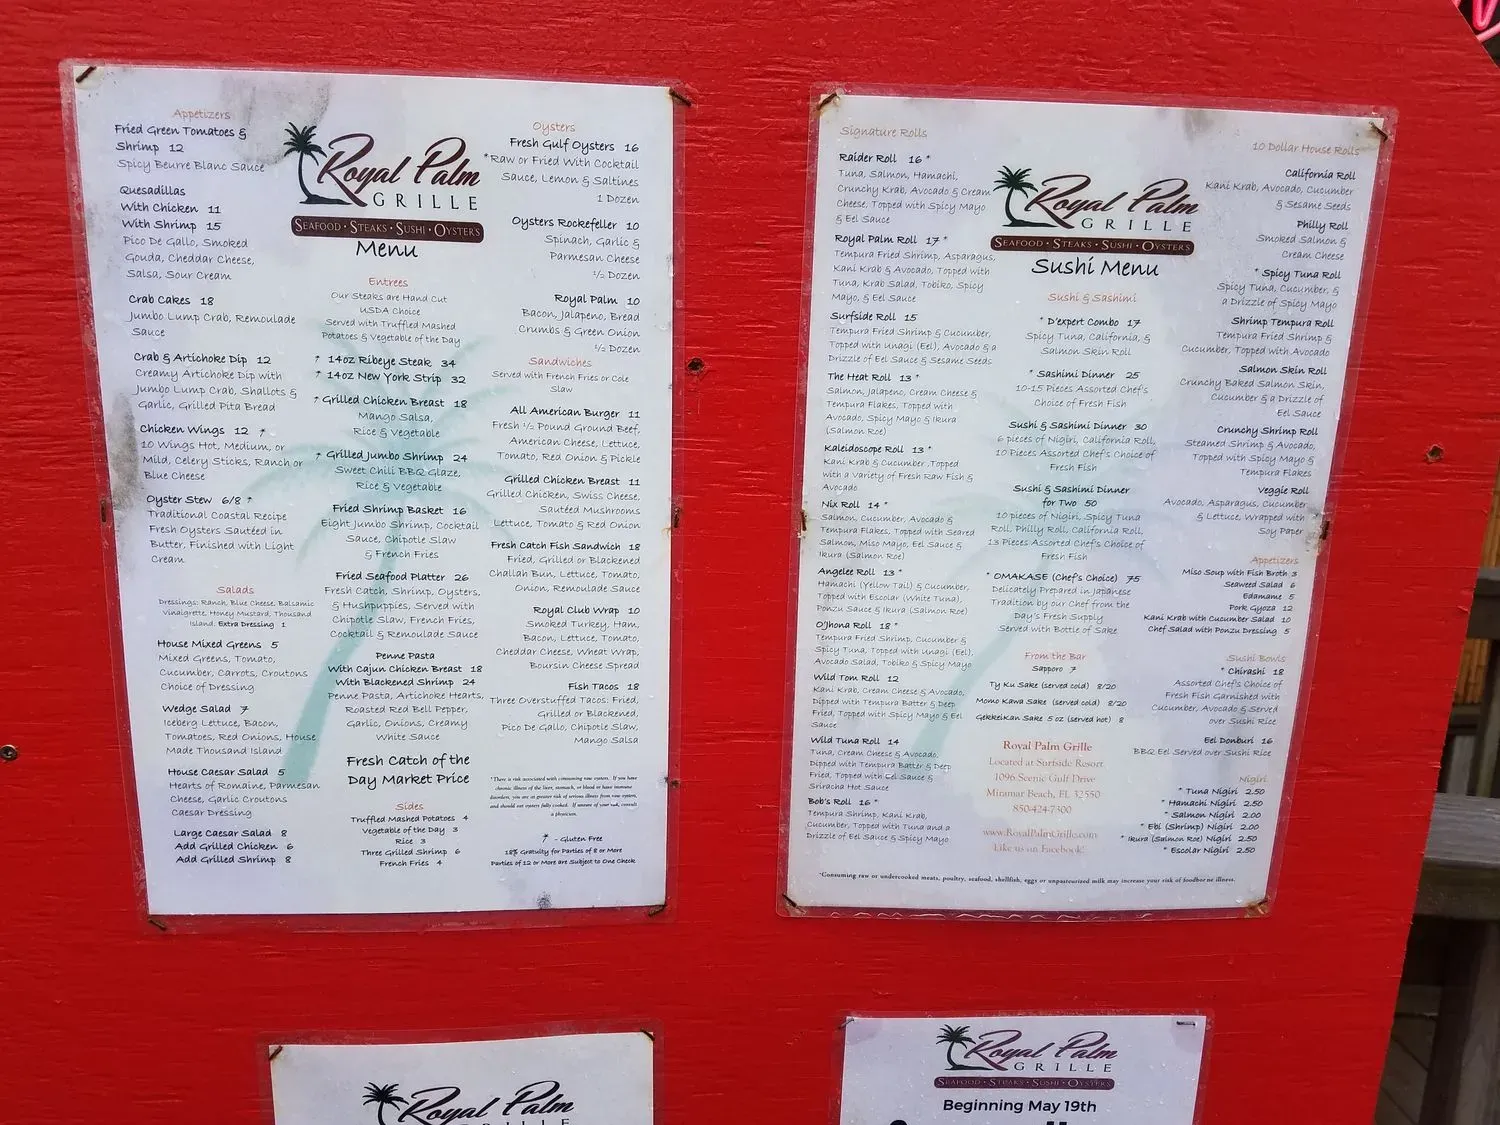 Appetizers
Fried Green Tomatoes &
Shrimp 12
Spicy Beurre Blanc Sauce
Quesadillas
With Chicken 11
With Shrimp 15
Pico De Gallo, Smoked
Gouda, Cheddar Cheese,
Salsa, Sour Cream
Crab Cakes 18
Jumbo Lump Crab, Remoulade
Sauce
Crab & Artichoke Dip 12
Creamy Artichoke Dip with
Jumbo Lump Crab, Shallots &
Garlic, Grilled Pita Bread
Chicken Wings 12 *
10 Wings Hot, Medium, or
Mild, Celery Sticks, Ranch or
Blue Cheese
Oyster Stew 6/8 *
Traditional Coastal Recipe
Fresh Oysters Sautéed in
Butter, Finished with Light
Cream
Salads
Dressings: Ranch, Blue Cheese, Balsamic
Vinaigrette, Honey Mustard, Thousand
Island. Extra Dressing 1
House Mixed Greens 5
Mixed Greens, Tomato,
Cucumber, Carrots, Croutons
Choice of Dressing
Wedge Salad 7
Iceberg Lettuce, Bacon,
Tomatoes, Red Onions, House
Made Thousand Island
House Caesar Salad 5
Hearts of Romaine, Parmesan
Cheese, Garlic Croutons
Caesar Dressing
Large Caesar Salad 8
Add Grilled Chicken 6
Add Grilled Shrimp 8
Royal Palm
GRILLE
SEAFOOD • STEAKS • SUSHI • OYSTERS
Menu
Entrees
Our Steaks are Hand Cut
USDA Choice
Served with Truffled Mashed
Potatoes & Vegetable of the Day
* 14oz Ribeye Steak 34
* 14oz New York Strip 32
* Grilled Chicken Breast 18
Mango Salsa,
Rice & Vegetable
* Grilled Jumbo Shrimp 24
Sweet Chili BBQ Glaze,
Rice & Vegetable
Fried Shrimp Basket 16
Eight Jumbo Shrimp, Cocktail
Sauce, Chipotle Slaw
& French Fries
Fried Seafood Platter 26
Fresh Catch, Shrimp, Oysters,
& Hushpuppies, Served with
Chipotle Slaw, French Fries,
Cocktail & Remoulade Sauce
Penne Pasta
With Cajun Chicken Breast 18
With Blackened Shrimp 24
Penne Pasta, Artichoke Hearts,
Roasted Red Bell Pepper,
Garlic, Onions, Creamy
White Sauce
Fresh Catch of the
Day Market Price
Sides
Truffled Mashed Potatoes 4
Vegetable of the Day 3
Rice 3
Three Grilled Shrimp 6
French Fries 4
Oysters
Fresh Gulf Oysters 16
*Raw or Fried With Cocktail
Sauce, Lemon & Saltines
1 Dozen
Oysters Rockefeller 10
Spinach, Garlic &
Parmesan Cheese
½ Dozen
Royal Palm 10
Bacon, Jalapeno, Bread
Crumbs & Green Onion
½ Dozen
Sandwiches
Served with French Fries or Cole
Slaw
All American Burger 11
Fresh ½ Pound Ground Beef,
American Cheese, Lettuce,
Tomato, Red Onion & Pickle
Grilled Chicken Breast 11
Grilled Chicken, Swiss Cheese,
Sautéed Mushrooms
Lettuce, Tomato & Red Onion
Fresh Catch Fish Sandwich 18
Fried, Grilled or Blackened
Challah Bun, Lettuce, Tomato,
Onion, Remoulade Sauce
Royal Club Wrap 10
Smoked Turkey, Ham,
Bacon, Lettuce, Tomato,
Cheddar Cheese, Wheat Wrap,
Boursin Cheese Spread
Fish Tacos 18
Three Overstuffed Tacos: Fried,
Grilled or Blackened,
Pico De Gallo, Chipotle Slaw,
Mango Salsa
*There is risk associated with consuming raw oysters. If you have
chronic illness of the liver, stomach, or blood or have immune
disorders, you are at greater risk of serious illness from raw oysters,
and should eat oysters fully cooked. If unsure of your risk, consult
a physician.
* - Gluten Free
18% Gratuity for Parties of 8 or More
Parties of 12 or More are Subject to One Check
Signature Rolls
Raider Roll 16 *
Tuna, Salmon, Hamachi,
Crunchy Krab, Avocado & Cream
Cheese, Topped with Spicy Mayo
& Eel Sauce
Royal Palm Roll 17 *
Tempura Fried Shrimp, Asparagus,
Kani Krab & Avocado, Topped with
Tuna, Krab Salad, Tobiko, Spicy
Mayo, & Eel Sauce
Surfside Roll 15
Tempura Fried Shrimp & Cucumber,
Topped with Unagi (Eel), Avocado & a
Drizzle of Eel Sauce & Sesame Seeds
The Heat Roll 13 *
Salmon, Jalapeno, Cream Cheese &
Tempura Flakes, Topped with
Avocado, Spicy Mayo & Ikura
(Salmon Roe)
Kaleidoscope Roll 13 *
Kani Krab & Cucumber, Topped
with a Variety of Fresh Raw Fish &
Avocado
Nix Roll 14 *
Salmon, Cucumber, Avocado &
Tempura Flakes, Topped with Seared
Salmon, Miso Mayo, Eel Sauce &
Ikura (Salmon Roe)
Angelee Roll 13 *
Hamachi (Yellow Tail) & Cucumber,
Topped with Escolar (White Tuna),
Ponzu Sauce & Ikura (Salmon Roe)
O'Jhona Roll 18 *
Tempura Fried Shrimp, Cucumber &
Spicy Tuna, Topped with Unagi (Eel),
Avocado Salad, Tobiko & Spicy Mayo
Wild Tom Roll 12
Kani Krab, Cream Cheese & Avocado,
Dipped with Tempura Batter & Deep
Fried, Topped with Spicy Mayo & Eel
Sauce
Wild Tuna Roll 14
Tuna, Cream Cheese & Avocado,
Dipped with Tempura Batter & Deep
Fried, Topped with Eel Sauce &
Sriracha Hot Sauce
Bob's Roll 16 *
Tempura Shrimp, Kani Krab,
Cucumber, Topped with Tuna and a
Drizzle of Eel Sauce & Spicy Mayo
Royal Palm
GRILLE
SEAFOOD • STEAKS • SUSHI • OYSTERS
Sushi Menu
Sushi & Sashimi
* D'expert Combo 17
Spicy Tuna, California, &
Salmon Skin Roll
* Sashimi Dinner 25
10-15 Pieces Assorted Chef's
Choice of Fresh Fish
Sushi & Sashimi Dinner 30
6 pieces of Nigiri, California Roll,
10 Pieces Assorted Chef's Choice of
Fresh Fish
Sushi & Sashimi Dinner
for Two 50
10 pieces of Nigiri, Spicy Tuna
Roll, Philly Roll, California Roll,
13 Pieces Assorted Chef's Choice of
Fresh Fish
* OMAKASE (Chef's Choice) 75
Delicately Prepared in Japanese
Tradition by our Chef from the
Day's Fresh Supply
Served with Bottle of Sake
From the Bar
Sapporo 7
Ty Ku Sake (served cold) 8/20
Momo Kawa Sake (served cold) 8/20
GekkeiKan Sake 5 oz (served hot) 8
Royal Palm Grille
Located at Surfside Resort
1096 Scenic Gulf Drive
Miramar Beach, FL 32550
850-424-7300
www.RoyalPalmGrille.com
Like us on Facebook!
10 Dollar House Rolls
California Roll
Kani Krab, Avocado, Cucumber
& Sesame Seeds
Philly Roll
Smoked Salmon &
Cream Cheese
* Spicy Tuna Roll
Spicy Tuna, Cucumber, &
a Drizzle of Spicy Mayo
Shrimp Tempura Roll
Tempura Fried Shrimp &
Cucumber, Topped with Avocado
Salmon Skin Roll
Crunchy Baked Salmon Skin,
Cucumber & a Drizzle of
Eel Sauce
Crunchy Shrimp Roll
Steamed Shrimp & Avocado,
Topped with Spicy Mayo &
Tempura Flakes
Veggie Roll
Avocado, Asparagus, Cucumber
& Lettuce, Wrapped with
Soy Paper
Appetizers
Miso Soup with Fish Broth 3
Seaweed Salad 6
Edamame 5
Pork Gyoza 12
Kani Krab with Cucumber Salad 10
Chef Salad with Ponzu Dressing 5
Sushi Bowls
* Chirashi 18
Assorted Chef's Choice of
Fresh Fish Garnished with
Cucumber, Avocado & Served
over Sushi Rice
Eel Donburi 16
BBQ Eel Served over Sushi Rice
Nigiri
* Tuna Nigiri 2.50
* Hamachi Nigiri 2.50
* Salmon Nigiri 2.50
* Ebi (Shrimp) Nigiri 2.00
* Ikura (Salmon Roe) Nigiri 2.50
* Escolar Nigiri 2.50
*Consuming raw or undercooked meats, poultry, seafood, shellfish, eggs or unpasteurized milk may increase your risk of foodborne illness.
Royal Palm
GRILLE
Royal Palm
GRILLE
SEAFOOD • STEAKS • SUSHI • OYSTERS
Beginning May 19th